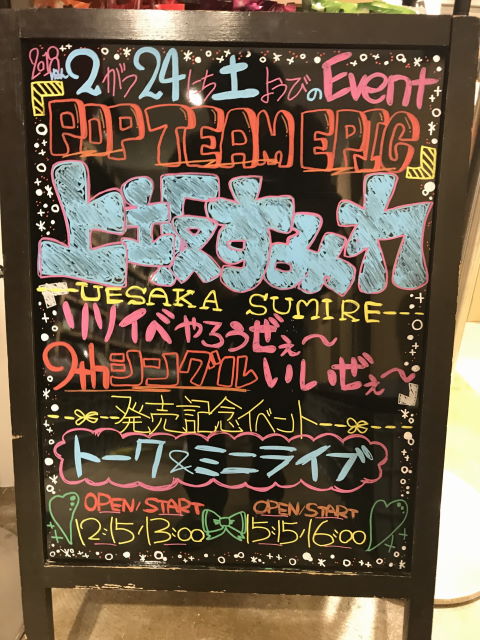 2018ねん2がつ24にち土ようびのEvent
POP TEAM EPIC
上坂すみれ
--UESAKA SUMIRE---
リリイベやろうぜぇ〜
9thシングルいいぜぇ〜
発売記念イベント
トーク&ミニライブ
OPEN/START OPEN/START
12:15/13:00 15:15/16:00